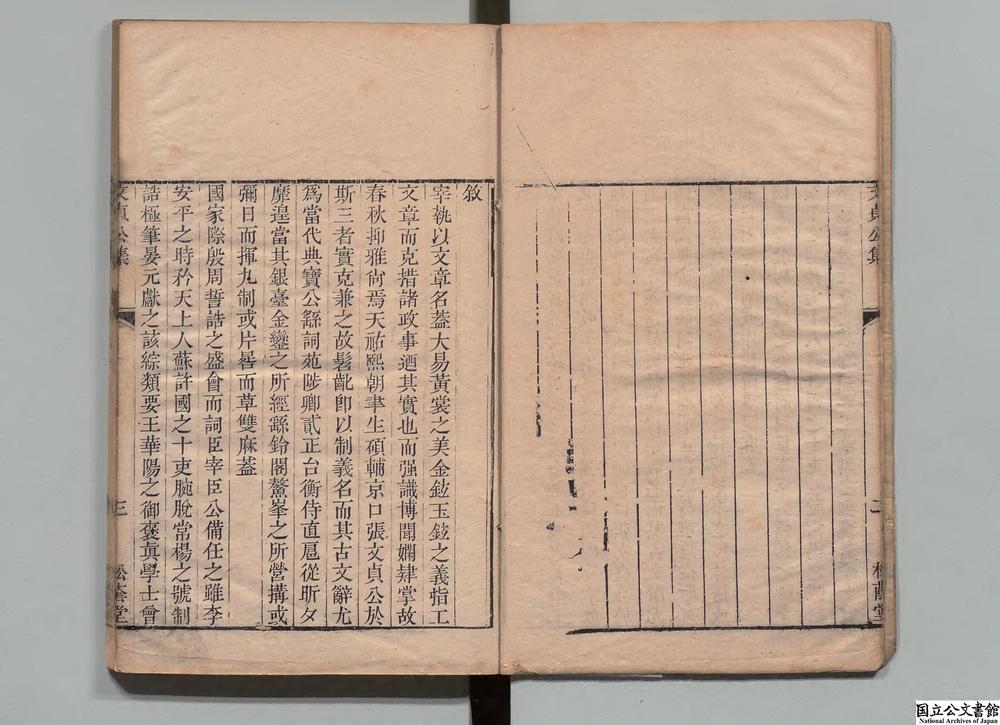 文貞公集
二
敘
宰執以文章名蓋大易黃裳之美金鉉玉鉉之義指工
文章而克措諸政事迺其實也而强識博聞嫻肄掌故
春秋抑雅尙焉天祐熙朝聿生碩輔京口張文貞公於
斯三者實克兼之故髫齔卽以制義名而其古文辭尤
爲當代典寶公繇詞苑陟卿貳正台衡侍直扈從昕夕
靡遑當其銀臺金鑾之所經繇鈴閣鰲峯之所營搆或
彌日而揮九制或片晷而草雙麻蓋
國家際殷周誓誥之盛會而詞臣宰臣公備任之雖李
安平之時矜天上人蘇許國之十吏腕脫常楊之號制
誥極筆晏元獻之該綜類要王華陽之御褒眞學士曾
文貞公集
三
松蔭堂
国立公文書館
National Archives of Japan